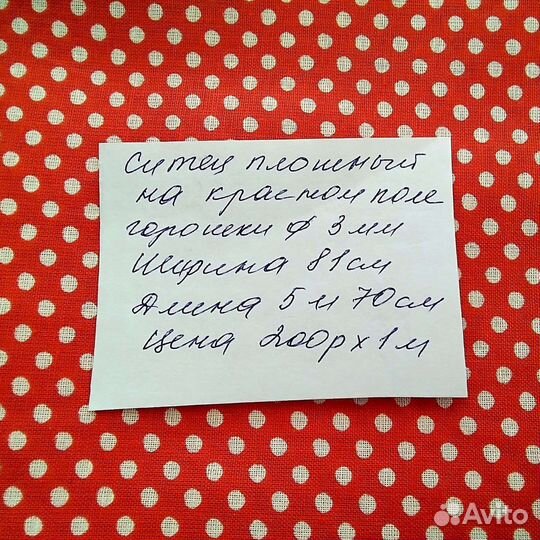 Ситец плотный
на красном поле
горошки ф 3мм
Ширина 81см
Длина 5м 70см
Цена 200р х 1м
Avito